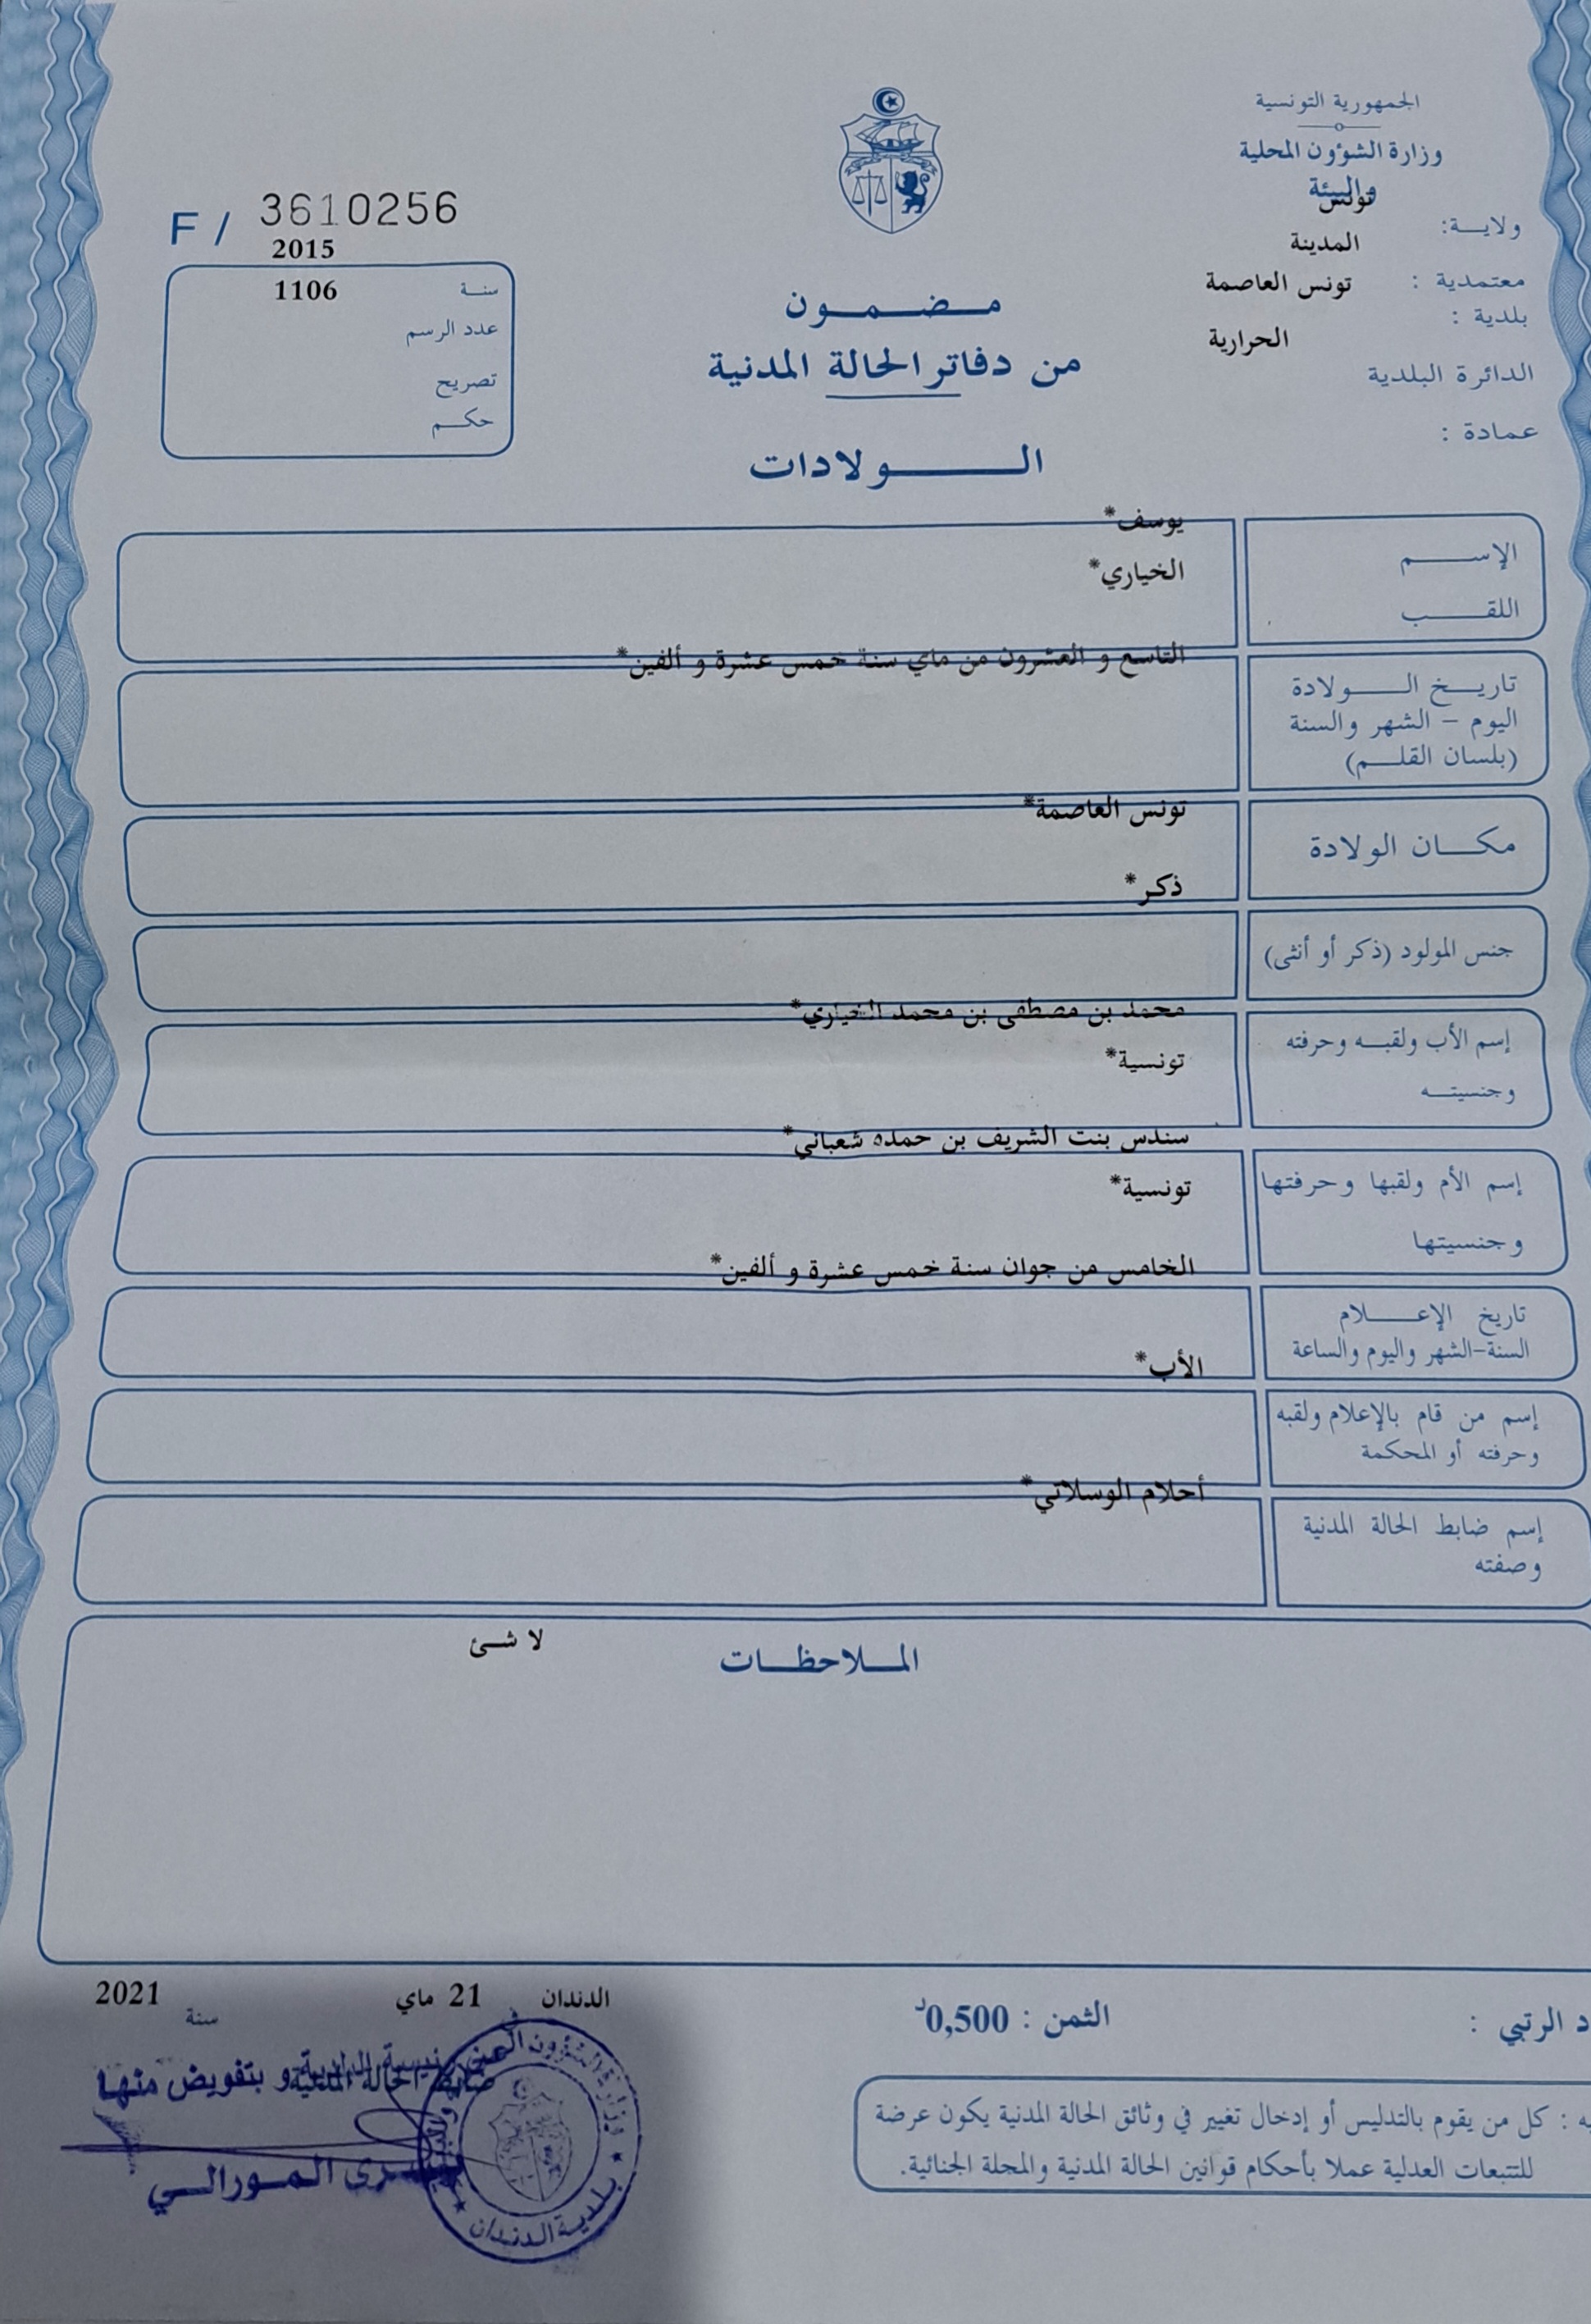 الجمهورية التونسية
وزارة الشؤون المحلية
والبيئة
ولايـــة: تونس
معتمدية : المدينة
بلدية : تونس العاصمة
الدائرة البلدية الحرارية
عمادة :
F / 3610256
سنة 2015
عدد الرسم 1106
تصريح
حكم
مضمون
من دفاتر الحالة المدنية
الولادات
الإسم يوسف*
اللقب الخياري*
تاريخ الولادة
اليوم - الشهر والسنة
(بلسان القلم)
التاسع و العشرون من ماي سنة خمس عشرة و ألفين*
مكان الولادة تونس العاصمة*
جنس المولود (ذكر أو أنثى) ذكر*
إسم الأب ولقبه وحرفته محمد بن مصطفى بن محمد الخياري*
وجنسيته تونسية*
إسم الأم ولقبها وحرفتها سندس بنت الشريف بن حمده شعباني*
وجنسيتها تونسية*
تاريخ الإعلام
السنة-الشهر واليوم والساعة
الخامس من جوان سنة خمس عشرة و ألفين*
إسم من قام بالإعلام ولقبه
وحرفته أو المحكمة
الأب*
إسم ضابط الحالة المدنية
وصفته
أحلام الوسلاتي*
الملاحظات
لا شئ
الدندان 21 ماي سنة 2021
ضابط الحالة المدنية
عن رئيسة البلدية و بتفويض منها
المورالي
بلدية الدندان
د الرتبي :
الثمن : 0,500د
يه : كل من يقوم بالتدليس أو إدخال تغيير في وثائق الحالة المدنية يكون عرضة
للتتبعات العدلية عملا بأحكام قوانين الحالة المدنية والمجلة الجنائية.